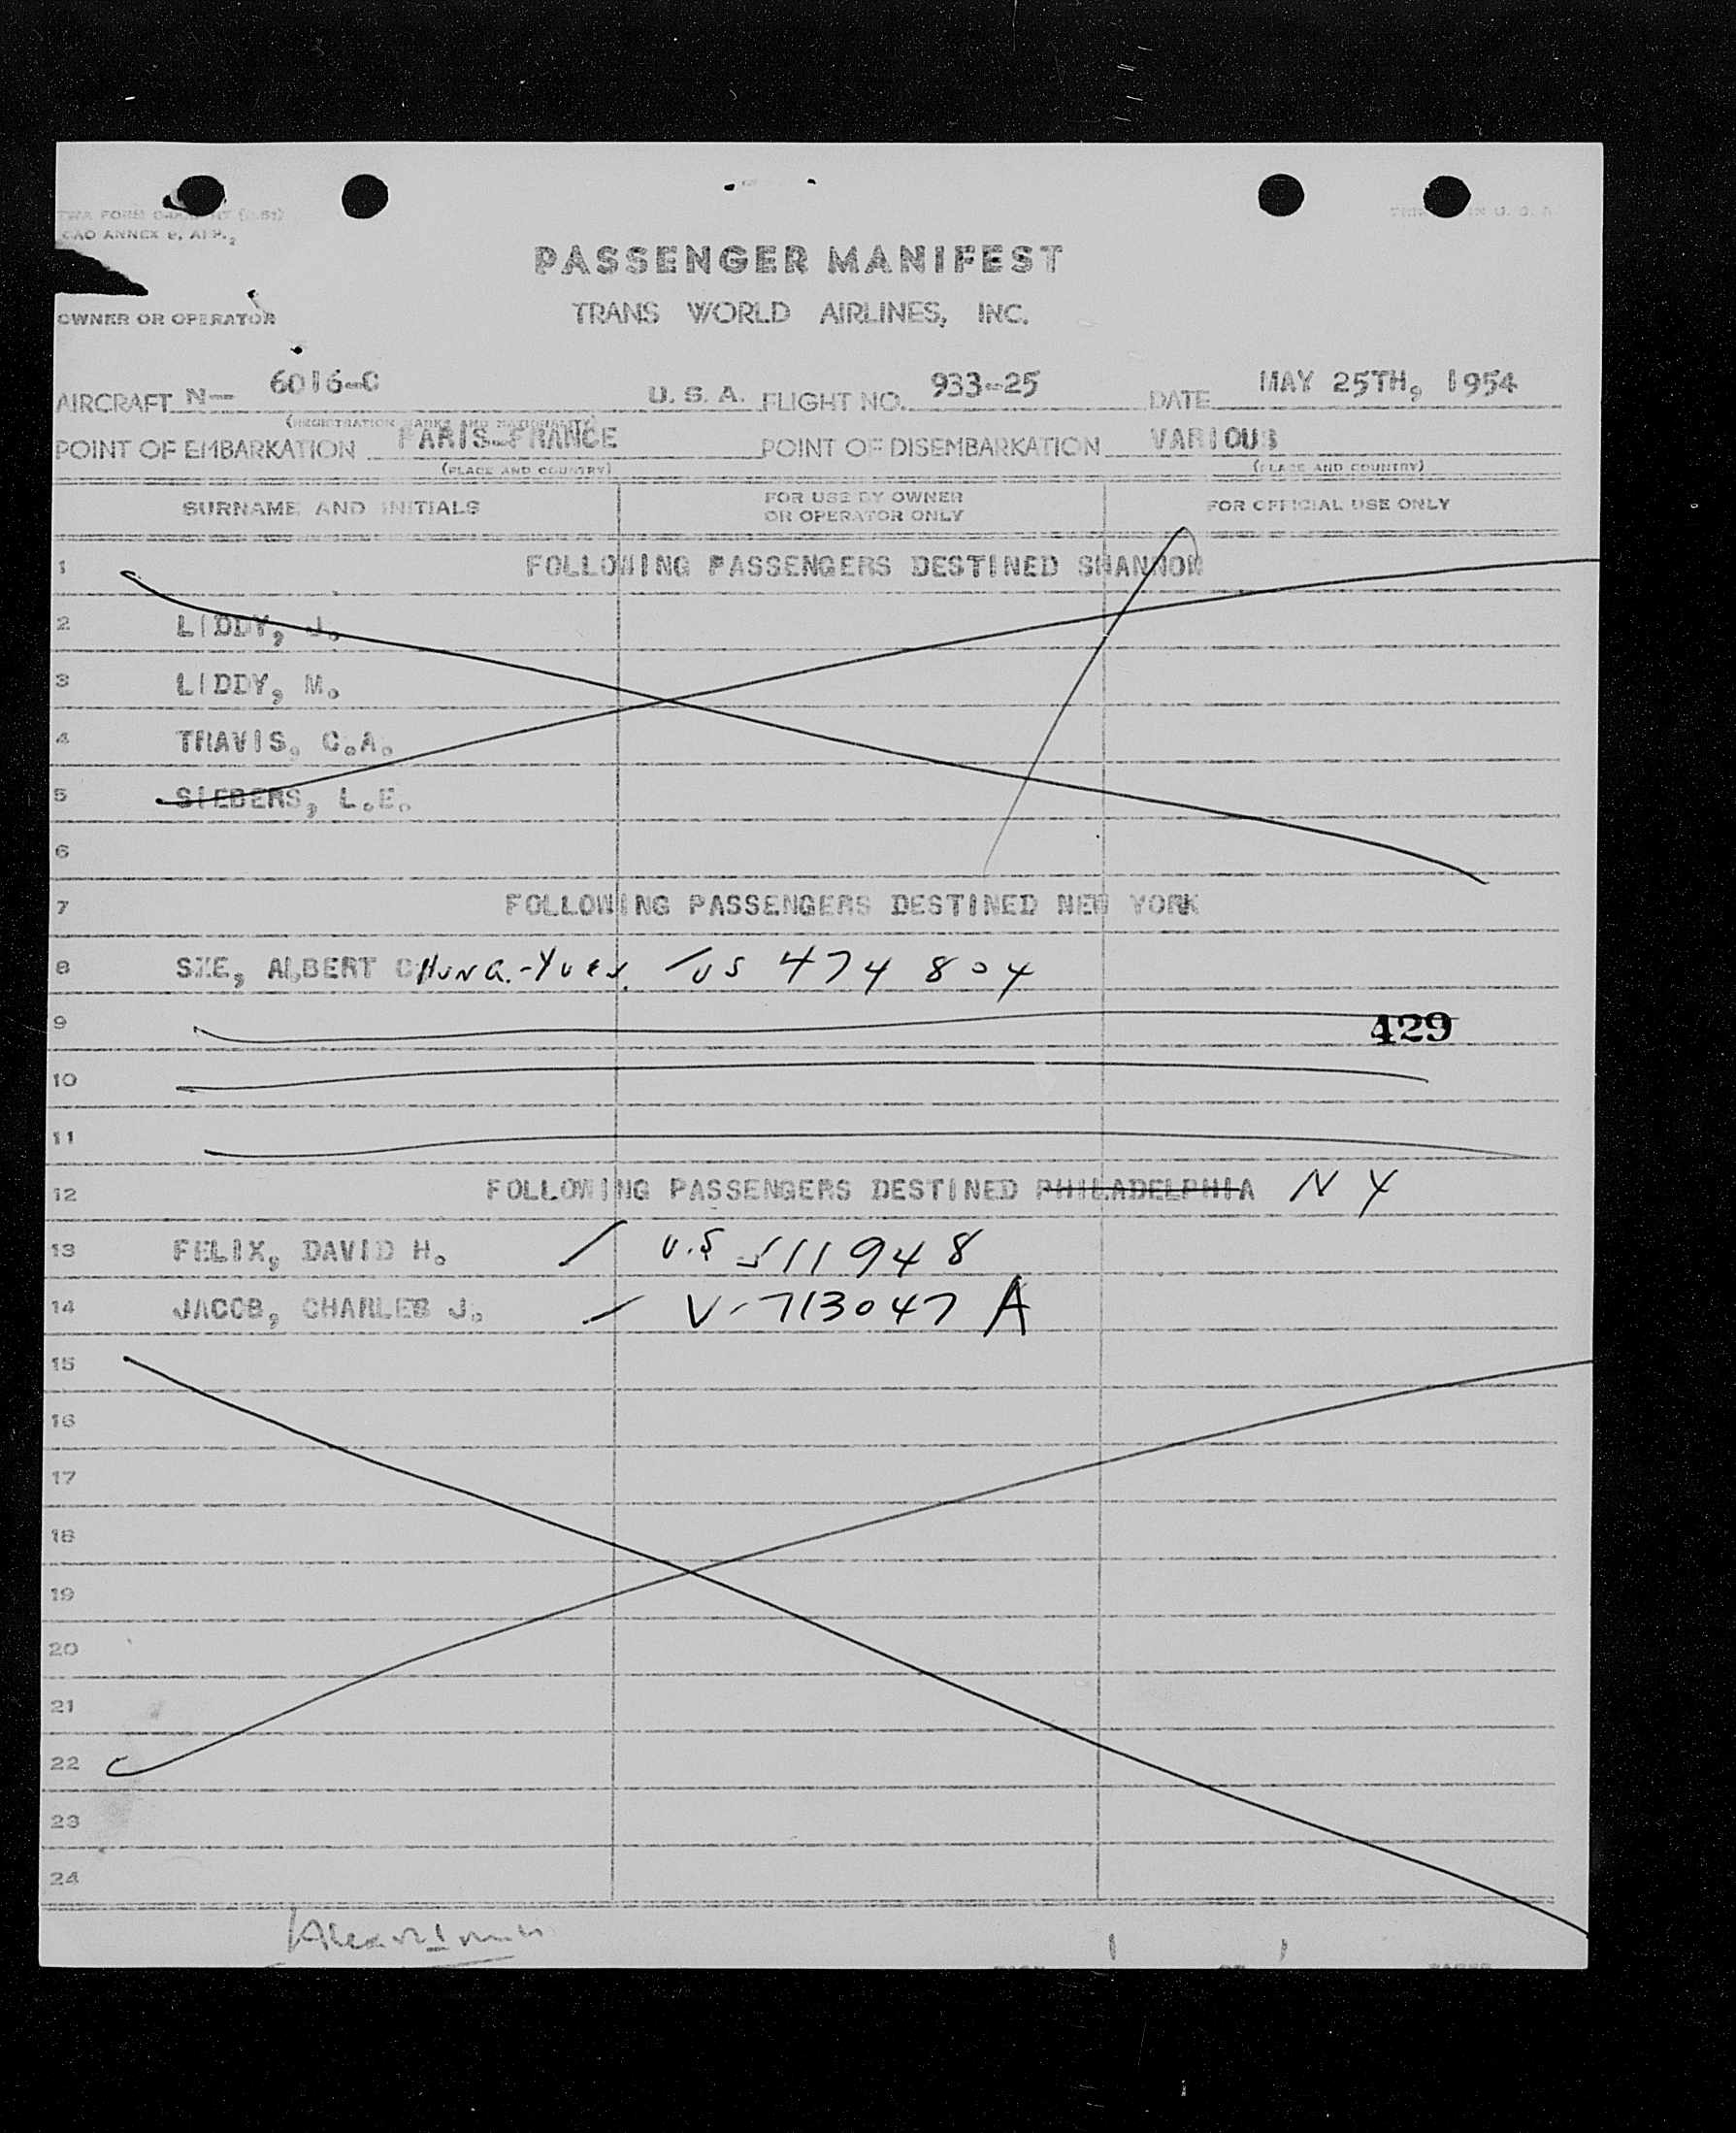 TWA FORM
ICAO ANNEX 9, APP. 2
PASSENGER MANIFEST
OWNER OR OPERATOR
TRANS WORLD AIRLINES, INC.
AIRCRAFT N— 6016-C U. S. A. FLIGHT NO. 933-25 DATE MAY 25TH, 1954
(REGISTRATION MARKS AND NATIONALITY)
POINT OF EMBARKATION PARIS-FRANCE POINT OF DISEMBARKATION VARIOUS
(PLACE AND COUNTRY) (PLACE AND COUNTRY)
SURNAME AND INITIALS FOR USE BY OWNER OR OPERATOR ONLY FOR OFFICIAL USE ONLY
1 FOLLOWING PASSENGERS DESTINED SHANNON
2 LIDDY, J.
3 LIDDY, M.
4 TRAVIS, C.A.
5 SIEBERS, L.E.
6
7 FOLLOWING PASSENGERS DESTINED NEW YORK
8 SZE, ALBERT CHUNG-YUEN. US 474804
9 429
10
11
12 FOLLOWING PASSENGERS DESTINED PHILADELPHIA N Y
13 FELIX, DAVID H. / U.S 511948
14 JACOB, CHARLES J. / V-713047 A
15
16
17
18
19
20
21
22
23
24